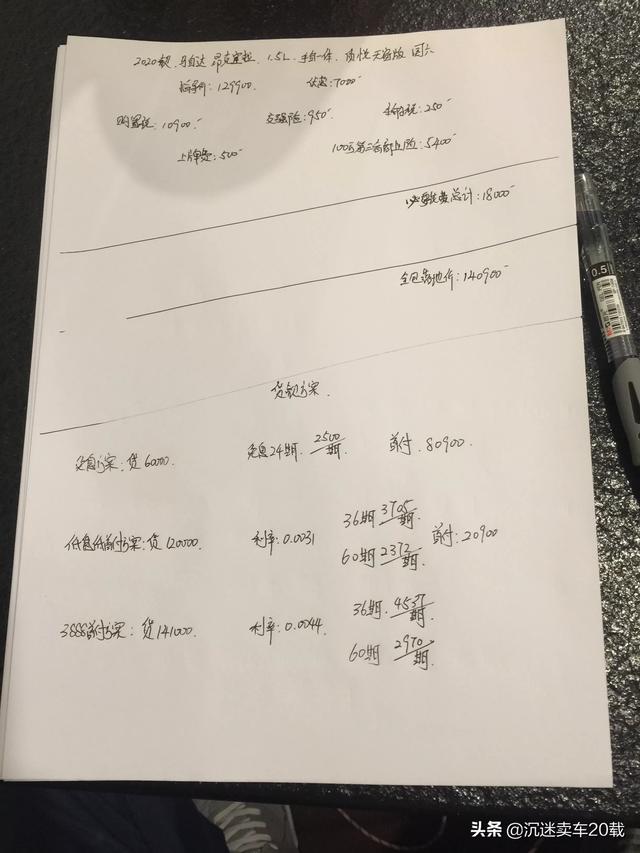 2020款 马自达 昂克赛拉 1.5L 手自一体 质悦天窗版 国六
指导价: 129900 优惠: 7000
购置税: 10900 交强险: 950 车船税: 250
上牌费: 500 100万第三者商业险: 5400
必要花费总计: 18000
全包落地价: 140900
贷款方案
免息方案: 贷60000. 免息24期. 2500/期. 首付. 80900
低息低首付方案: 贷120000. 利率: 0.0031 36期 3705/期. 首付: 20900
60期 2372/期.
3888首付方案: 贷141000. 利率: 0.0044. 36期. 4537/期.
60期 2970/期.
0.5
头条 @沉迷卖车20载